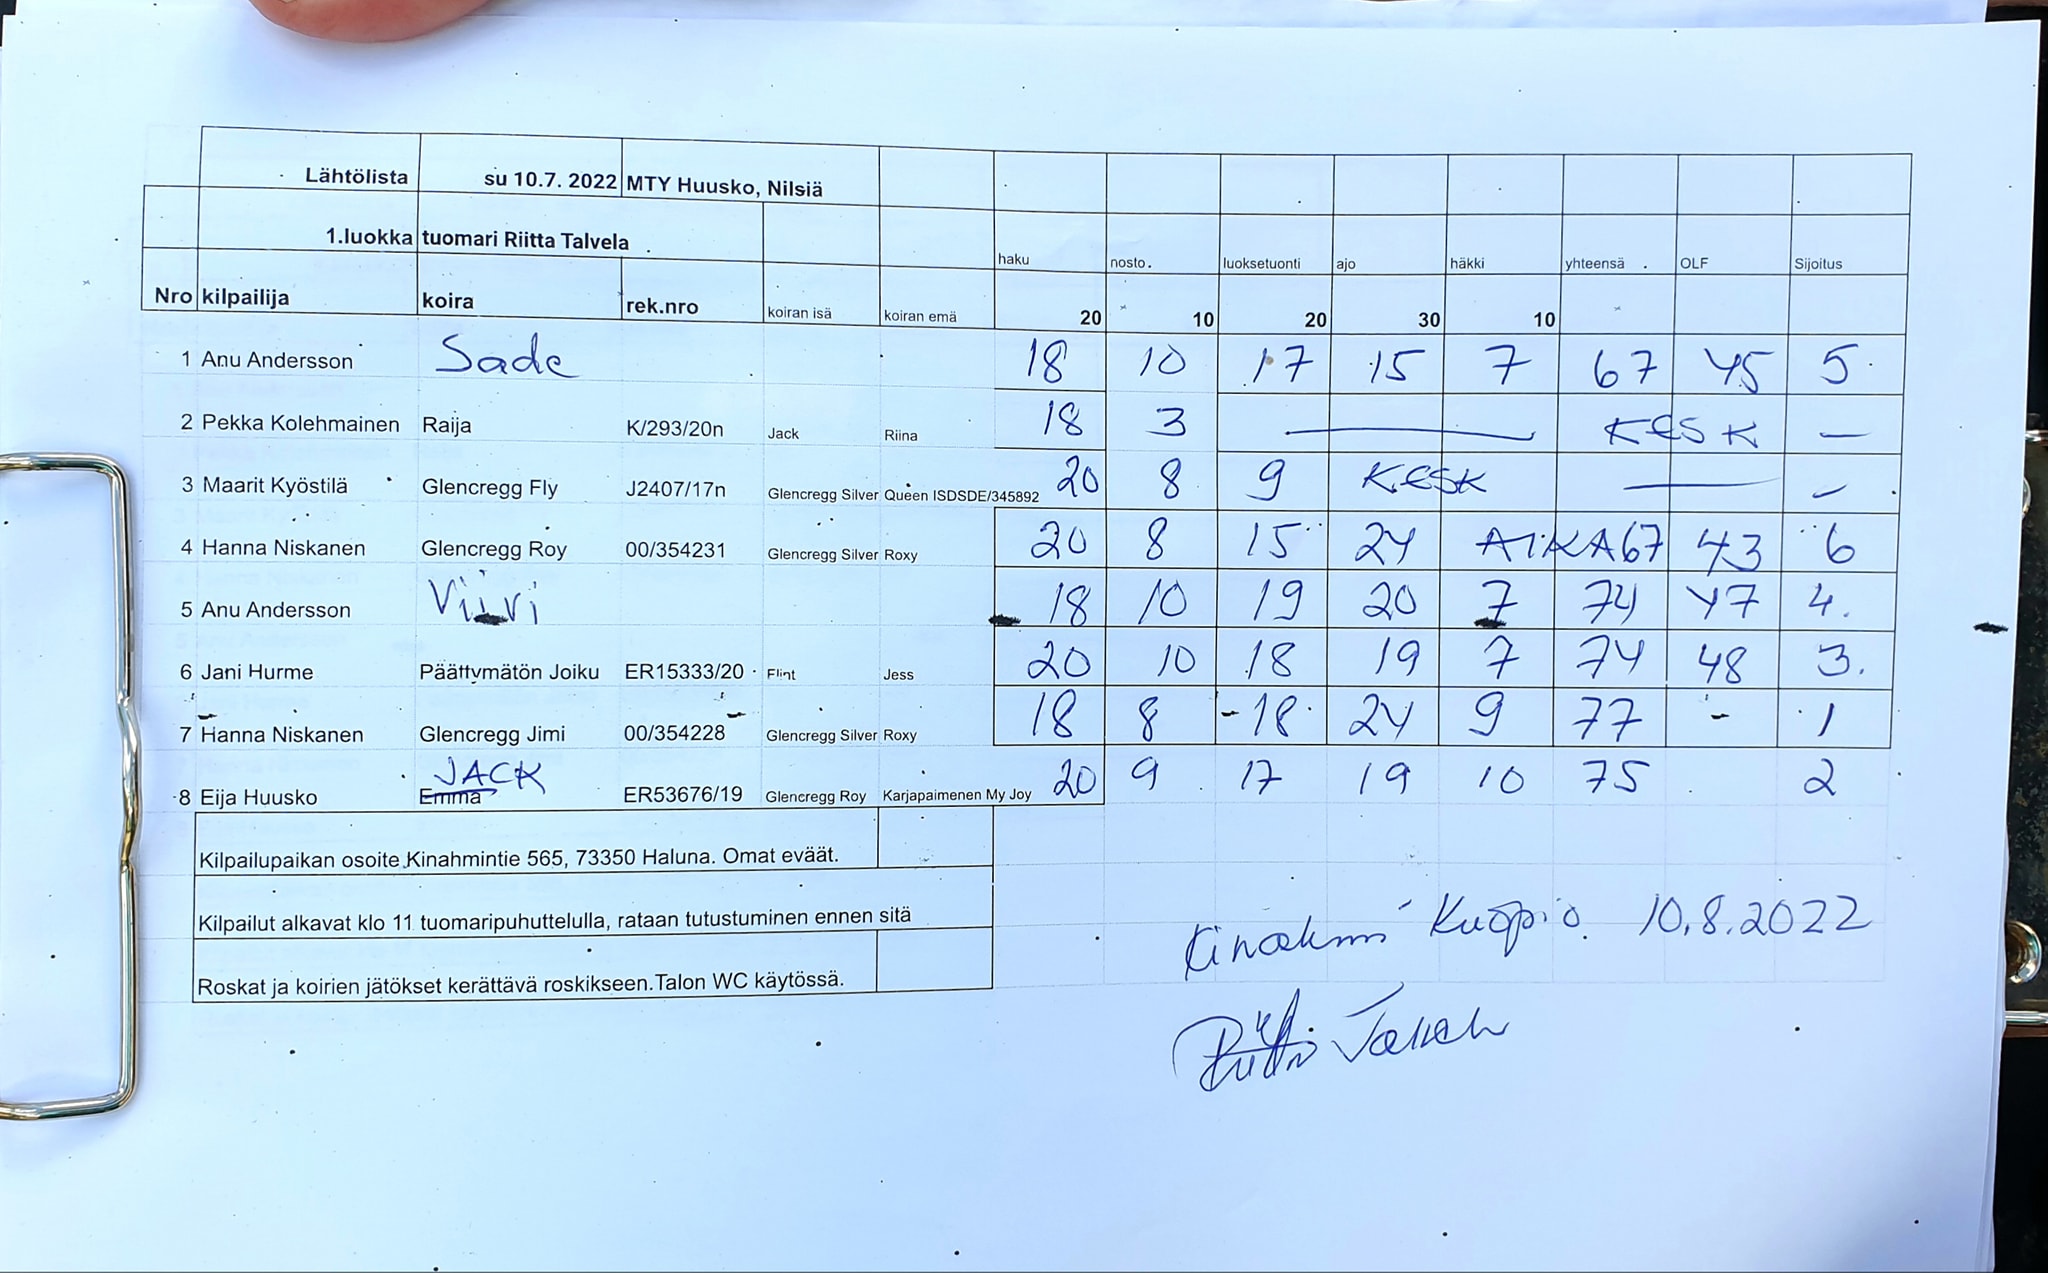 Lähtölista su 10.7. 2022 MTY Huusko, Nilsiä
1.luokka tuomari Riitta Talvela haku nosto. luoksetuonti ajo häkki yhteensä OLF Sijoitus
Nro kilpailija koira rek.nro koiran isä koiran emä 20 10 20 30 10
1 Anu Andersson Sade 18 10 17 15 7 67 45 5.
2 Pekka Kolehmainen Raija K/293/20n Jack Riina 18 3 — KESK —
3 Maarit Kyöstilä Glencregg Fly J2407/17n Glencregg Silver Queen ISDSDE/345892 20 8 9 KESK — –
4 Hanna Niskanen Glencregg Roy 00/354231 Glencregg Silver Roxy 20 8 15 24 AIKA 67 43 6
5 Anu Andersson Viivi 18 10 19 20 7 74 47 4.
6 Jani Hurme Päättymätön Joiku ER15333/20 Flint Jess 20 10 18 19 7 74 48 3.
7 Hanna Niskanen Glencregg Jimi 00/354228 Glencregg Silver Roxy 18 8 18 24 9 77 - 1
JACK
8 Eija Huusko Emma ER53676/19 Glencregg Roy Karjapaimenen My Joy 20 9 17 19 10 75 2
Kilpailupaikan osoite Kinahmintie 565, 73350 Haluna. Omat eväät.
Kilpailut alkavat klo 11 tuomaripuhuttelulla, rataan tutustuminen ennen sitä
Roskat ja koirien jätökset kerättävä roskikseen.Talon WC käytössä.
Kinahmi Kuopio 10.8.2022